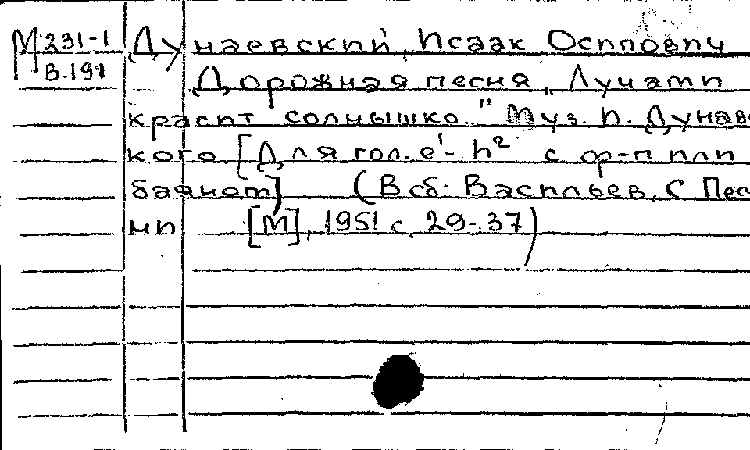 М 231-1 Дунаевский, Исаак Осипович
В.191 Дорожная песня „Лучами
красит солнышко." Муз. И. Дунаевс
кого [Для гол. e'- h² с ф-п или
баяном] (В сб: Васильев, С Пес
ни [М], 1951 с. 29-37)